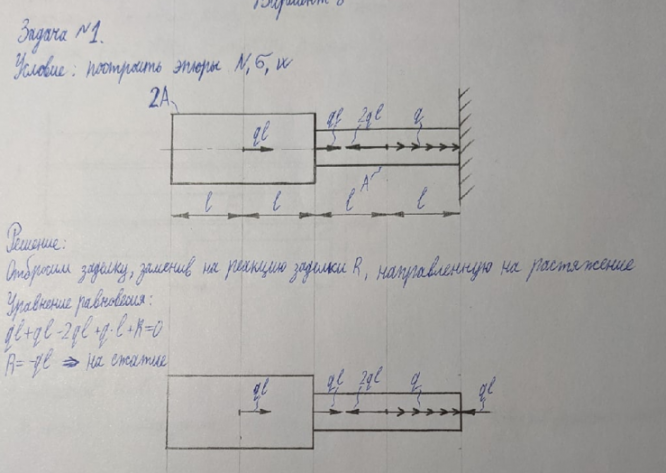 Вариант 8
Задача №1.
Условие: построить эпюры N, σ, u
2A
ql
ql
2ql
q
A
l
l
l
l
Решение:
Отбросим заделку, заменив на реакцию заделки R, направленную на растяжение
Уравнение равновесия:
ql+ql-2ql+q·l+R=0
R=-ql ⇒ на сжатие
ql
ql
2ql
q
ql